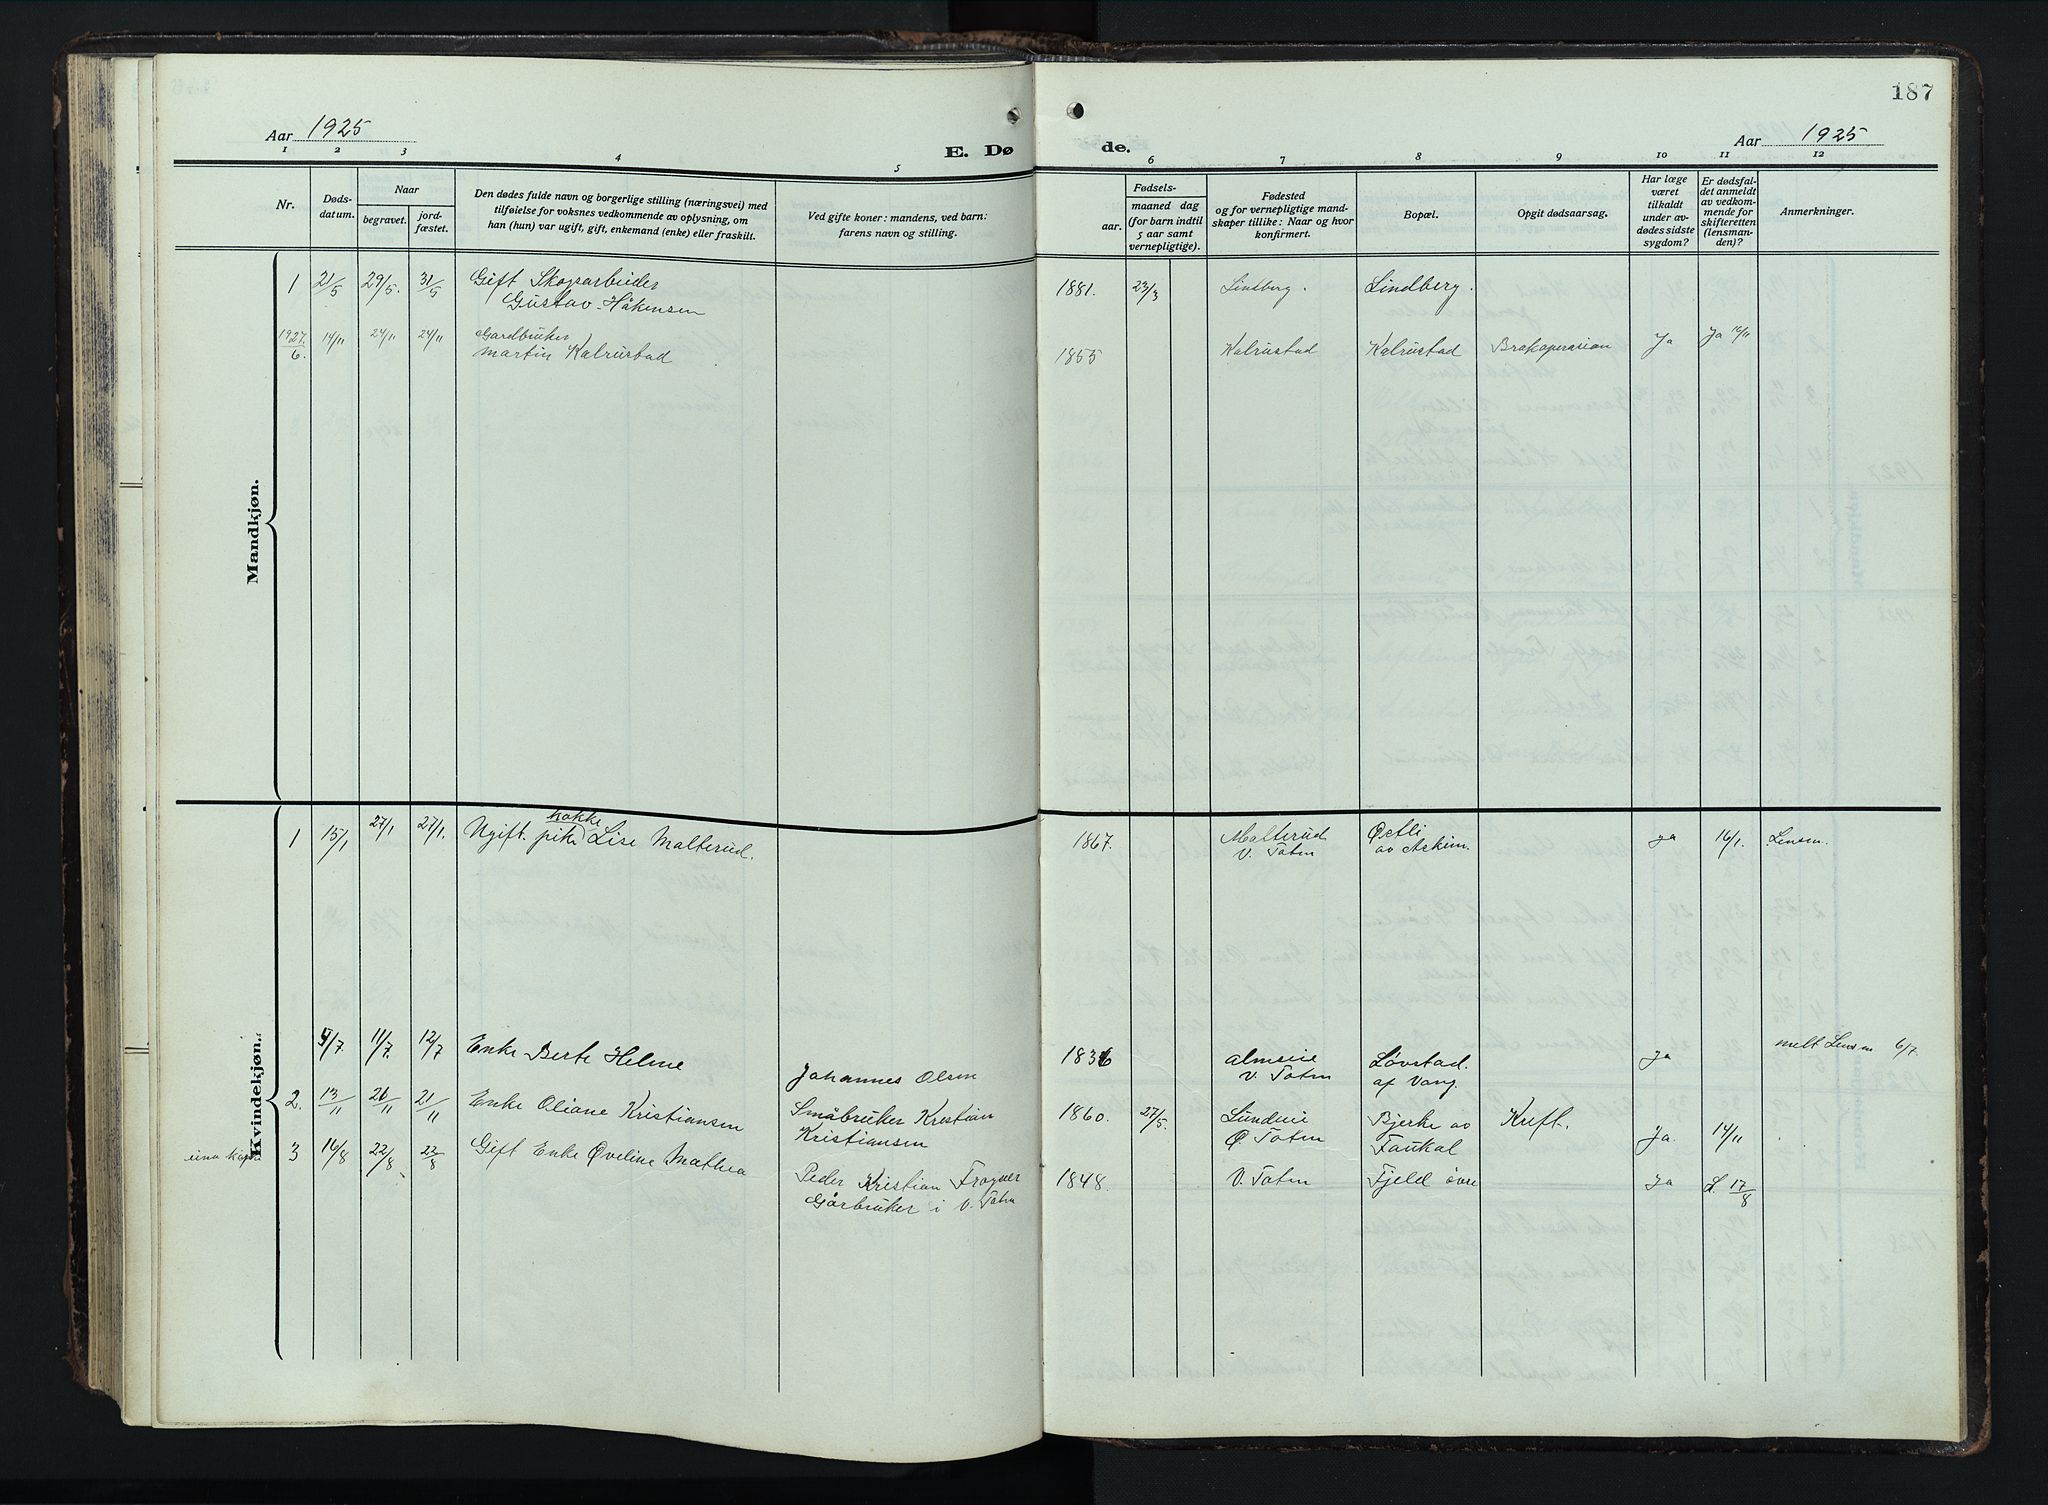 187
Aar 1925
E. Dø
de.
Aar 1925
1 2 3 4 5 6 7 8 9 10 11 12
Nr.
Døds-
datum.
Naar
begravet.
jord-
fæstet.
Den dødes fulde navn og borgerlige stilling (næringsvei) med
tilføielse for voksnes vedkommende av oplysning, om
han (hun) var ugift, gift, enkemand (enke) eller fraskilt.
Ved gifte koner: mandens, ved barn:
farens navn og stilling.
Fødsels-
aar.
maaned dag
(for barn indtil
5 aar samt
vernepligtige).
Fødested
og for vernepligtige mand-
skaper tillike: Naar og hvor
konfirmert.
Bopæl.
Opgit dødsaarsag.
Har læge
været
tilkaldt
under av-
dødes sidste
sygdom?
Er dødsfal-
det anmeldt
av vedkom-
mende for
skifteretten
(lensman-
den)?
Anmerkninger.
Mandkjøn.
1 21/5 29/5. 31/5 Gift Skogsarbeider
Gustav Håkensen
1881. 23/3 Lindberg. Lindberg.
1927.
6. 14/11 24/11 24/11 Gardbruker
Martin Kalrustad
1855 Kalrustad Kalrustad Brokoperasion Ja Ja 16/11
Kvindekjøn.
1 15/1 27/1 27/1. Ugift. pike Lise Malterud.
kokke
1867. Malterud
V. Toten
Østli
av Askim.
ja 16/1. Lensm.
5/7. 11/7. 12/7 Enke Berte Helme
Johannes Olsen
1836 Almeie
V. Toten
Løvstad.
af Vang.
Ja melt Lensm 6/7.
2. 13/11 20/11 21/11 Enke Oliane Kristiansen
Småbruker Kristian
Kristiansen
1860. 27/5. Lundeie
Ø. Toten
Bjerke av
Faukal
Kreft. Ja. 14/11
eina Kapel 3 16/8 22/8 22/8 Gift Enke Øveline Mathea
Peder Kristian Frogner
Gårbruker i V. Toten
1848. V. Toten Fjeld øvre Ja L. 17/8